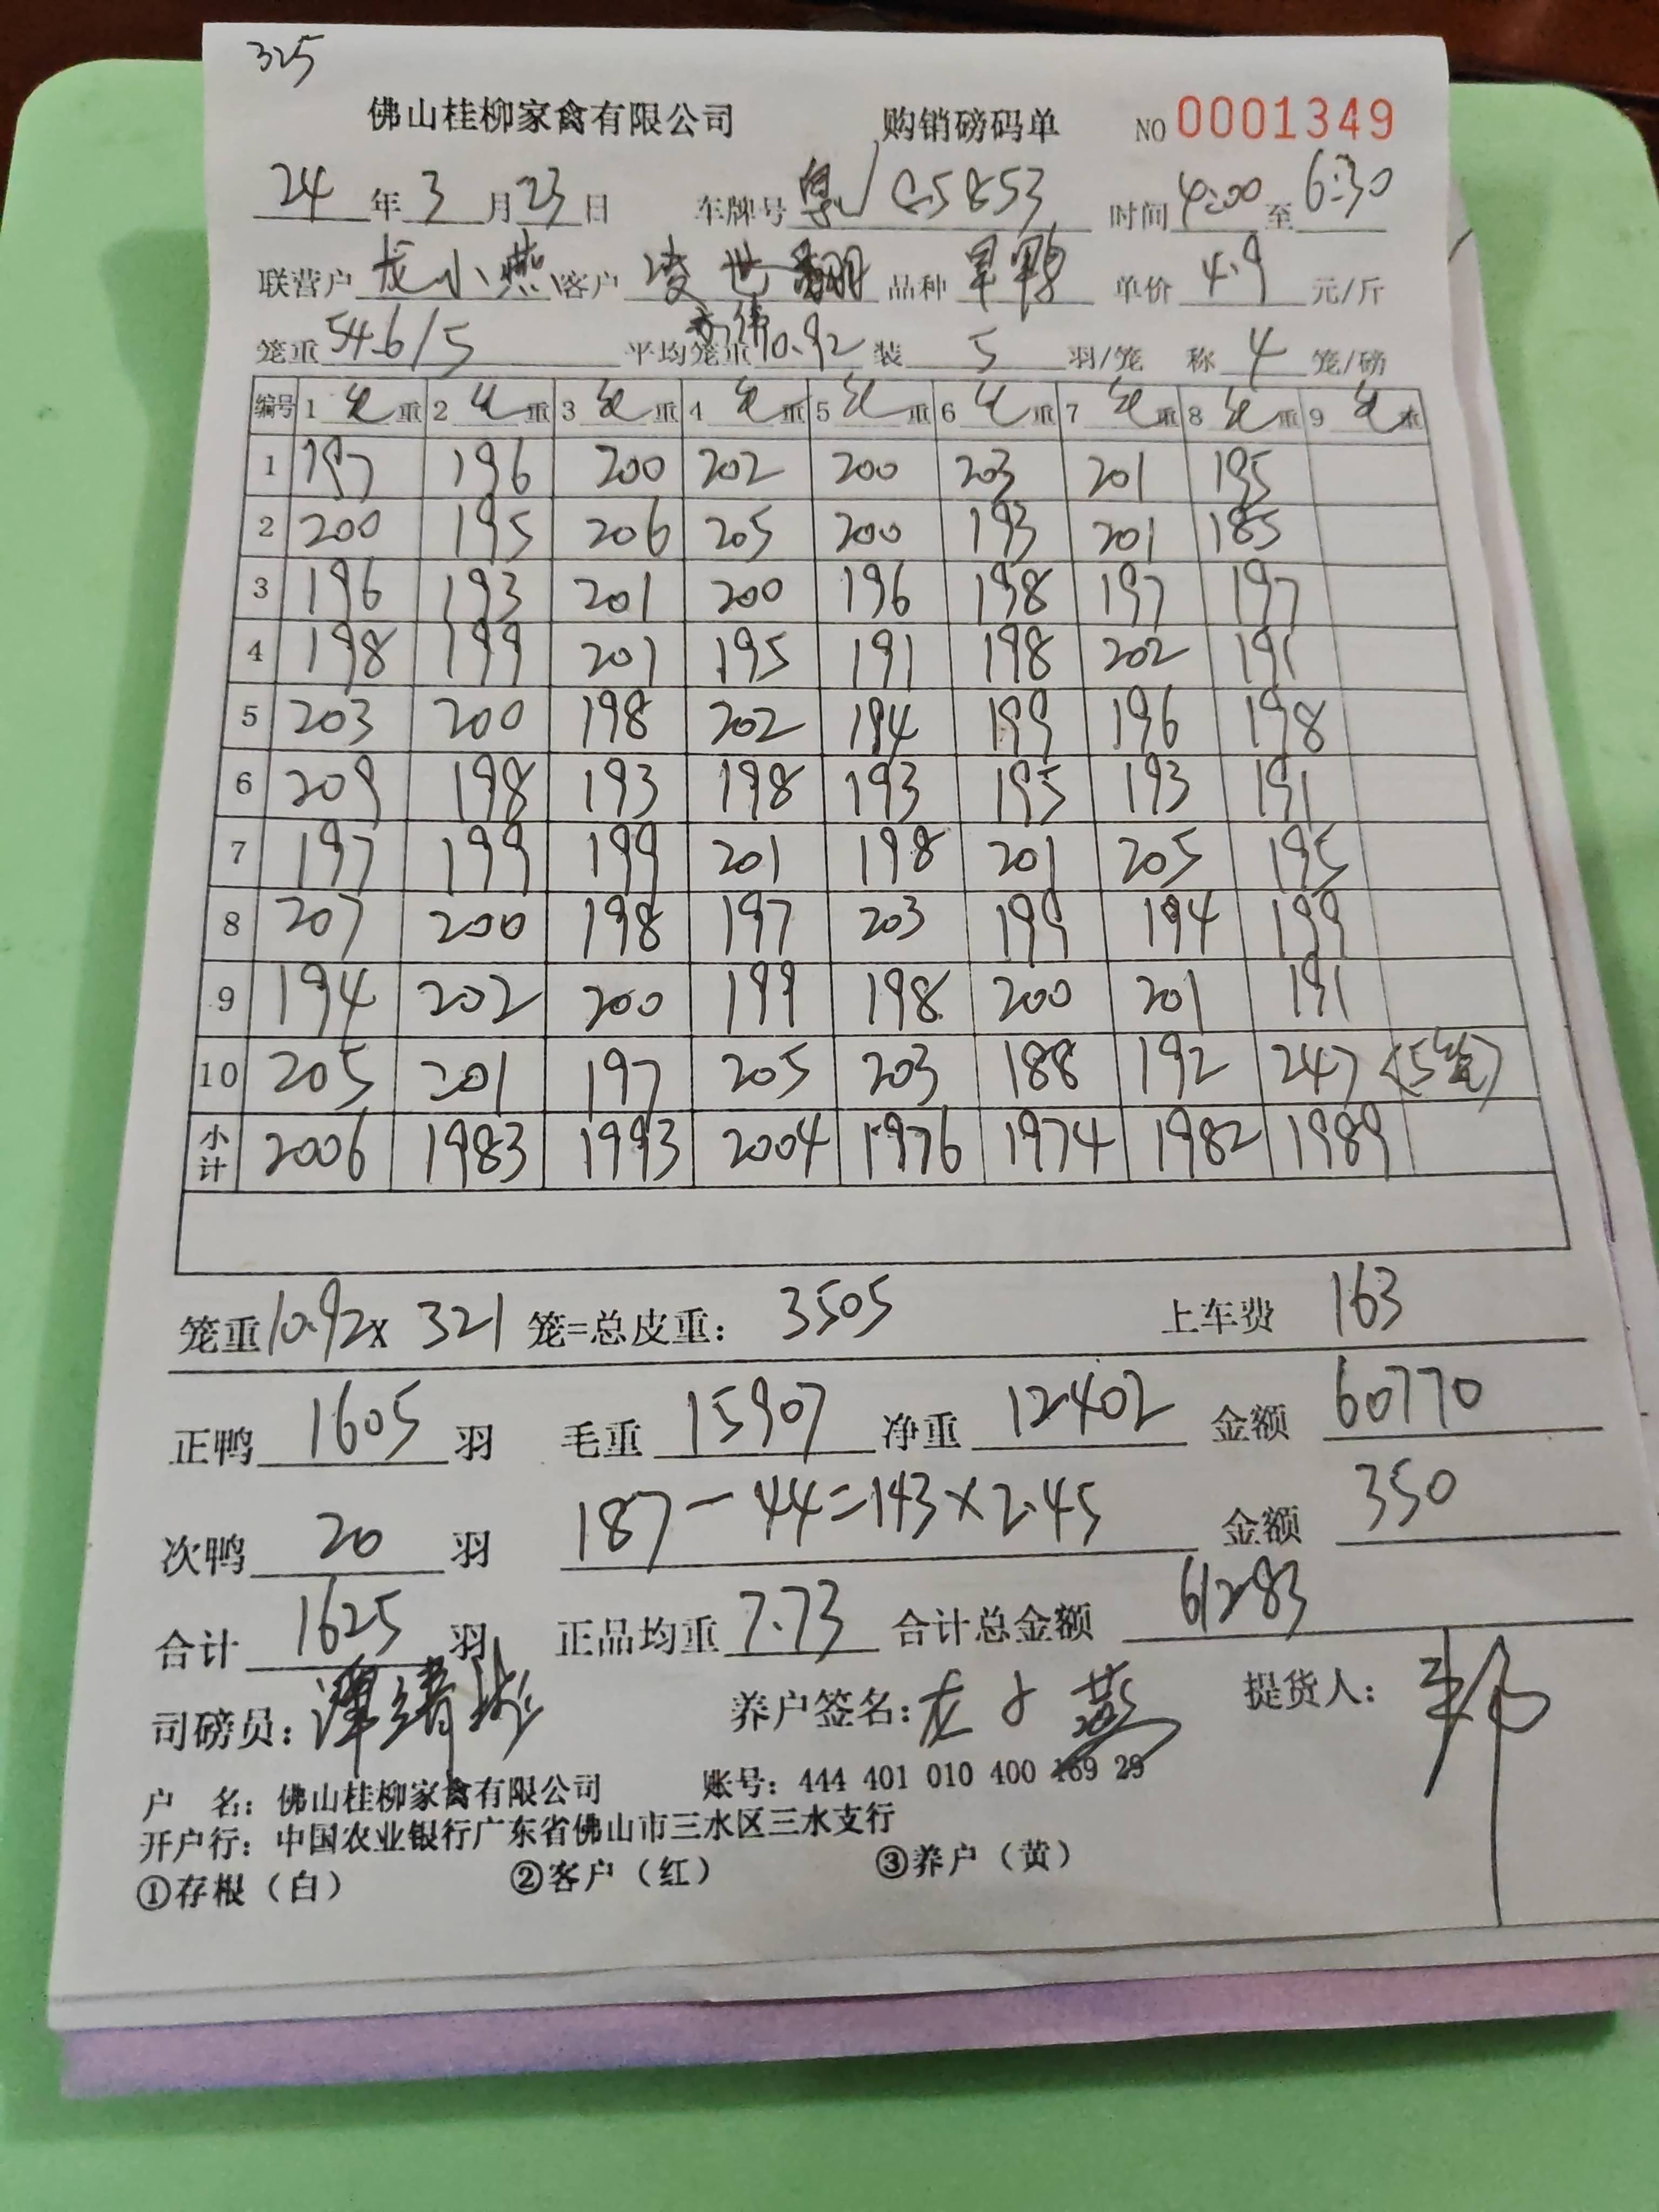 325
佛山桂柳家禽有限公司 购销磅码单 NO 0001349
24年3月23日 车牌号 粤J C5853 时间 4:00 至 6:30
联营户 龙小燕 客户 凌世翻 品种 旱鸭 单价 4.9 元/斤
笼重 54.6/5 平均笼重 10.92 装 5 羽/笼 称 4 笼/磅
编号 1 毛重 2 毛重 3 毛重 4 毛重 5 毛重 6 毛重 7 毛重 8 毛重 9 毛重
1 197 196 200 202 200 203 201 195
2 200 195 206 205 200 193 201 185
3 196 193 201 200 196 198 197 197
4 198 199 201 195 191 198 202 191
5 203 200 198 202 194 199 196 198
6 209 198 193 198 193 195 193 191
7 197 199 199 201 198 201 205 195
8 207 200 198 197 203 199 194 199
9 194 202 200 199 198 200 201 191
10 205 201 197 205 203 188 192 247 (5笼)
小计 2006 1983 1993 2004 1976 1974 1982 1989
笼重 10.92 x 321 笼=总皮重: 3505 上车费 163
正鸭 1605 羽 毛重 15907 净重 12402 金额 60770
次鸭 20 羽 187-44=143×2.45 金额 350
合计 1625 羽 正品均重 7.73 合计总金额 61283
司磅员: 养户签名: 龙小燕 提货人:
户 名: 佛山桂柳家禽有限公司 账号: 444 401 010 400 169 29
开户行: 中国农业银行广东省佛山市三水区三水支行
①存根（白） ②客户（红） ③养户（黄）